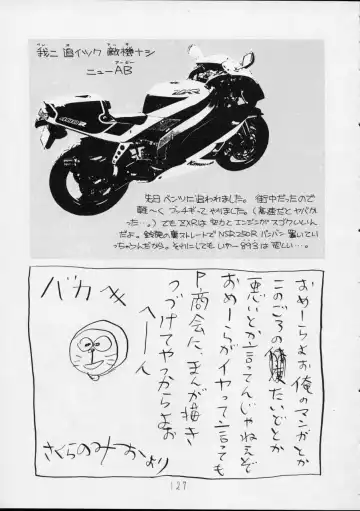 我ニ追イツク敵機ナシ
ニューAB
先日ベンツに追われました。街中だったので
軽〜くブッチギってやりました。(高速だとヤバか
った…。)でもZXRは空力とエンジンがスゴクいいんだ
よ。鈴鹿の裏ストレートでNSR250Rバンバン置いてい
っちゃうんだから。それにしてもレヤー893は恐しい…。
おめーらよお俺のマンガとか
このごろの態度とか
悪いとか言ってんじゃねえぞ
おめーらがイヤって言っても
P.商会に、まんが描き
つづけてやっからよお
へーん
バカへ
さくらのみおより
127